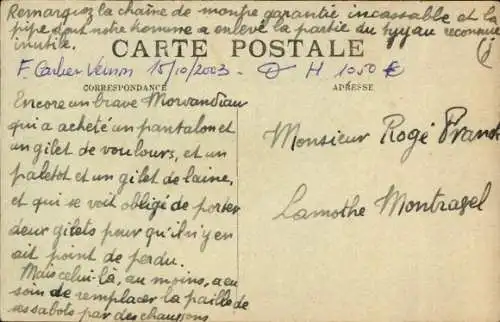 Remarquez la chaîne de montre garantie incassable et la
pipe dont notre homme a enlevé la partie du tuyau reconnue
inutile.
CARTE POSTALE
F. Carlier Vernon 15/10/2003 - H 1050 €
CORRESPONDANCE
ADRESSE
Encore un brave Morvandiau
qui a acheté un pantalon et
un gilet de voulours, et un
paletot et un gilet de laine,
et qui se voit obligé de porter
deux gilets pour qu'il n'y en
ait point de perdu.
Mais celui-là, au moins, a eu
soin de remplacer la paille de
ses sabots par des chaussons
Monsieur Rogé Franck
Lamothe Montravel